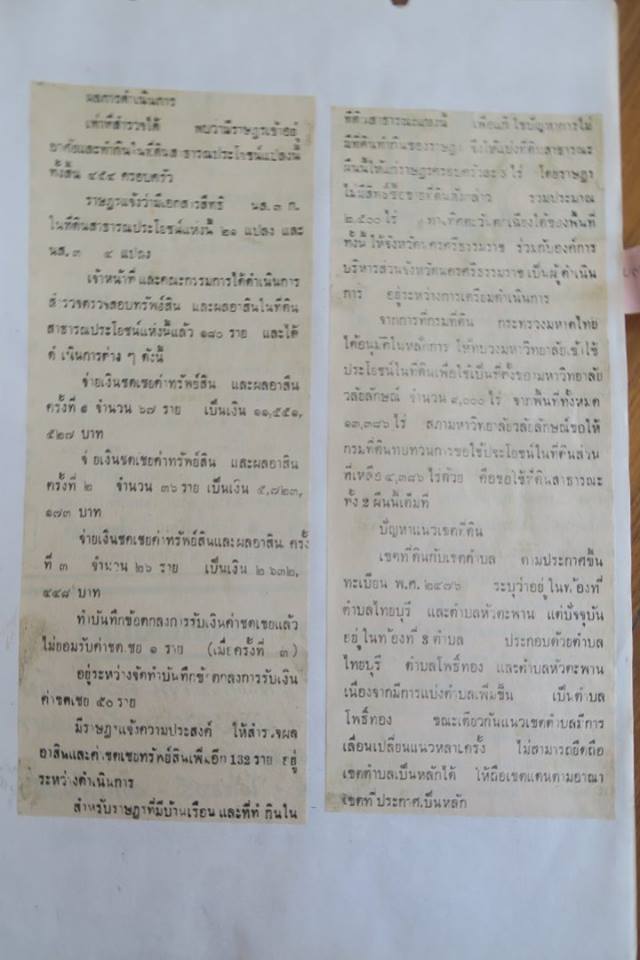 ผลการดำเนินการ
เท่าที่สำรวจได้ พบว่ามีราษฎรเข้าอยู่
อาศัยและทำกินในที่ดินสาธารณประโยชน์แปลงนี้
ทั้งสิ้น ๔๕๔ ครอบครัว
ราษฎรแจ้งว่ามีเอกสารสิทธิ นส.๓ ก.
ในที่ดินสาธารณประโยชน์แห่งนี้ ๒๑ แปลง และ
นส.๓ ๔ แปลง
เจ้าหน้าที่และคณะกรรมการได้ดำเนินการ
สำรวจตรวจสอบทรัพย์สิน และผลอาสินในที่ดิน
สาธารณประโยชน์แห่งนี้แล้ว ๑๘๐ ราย และได้
ดำเนินการต่าง ๆ ดังนี้
จ่ายเงินชดเชยค่าทรัพย์สิน และผลอาสิน
ครั้งที่ ๑ จำนวน ๖๗ ราย เป็นเงิน ๑๑,๕๕๑,
๕๒๗ บาท
จ่ายเงินชดเชยค่าทรัพย์สิน และผลอาสิน
ครั้งที่ ๒ จำนวน ๓๖ ราย เป็นเงิน ๕,๗๒๓,
๑๗๓ บาท
จ่ายเงินชดเชยค่าทรัพย์สินและผลอาสิน ครั้ง
ที่ ๓ จำนวน ๒๖ ราย เป็นเงิน ๒,๖๓๒,
๔๔๘ บาท
ทำบันทึกข้อตกลงการรับเงินค่าชดเชยแล้ว
ไม่ยอมรับค่าชดเชย ๑ ราย (เมื่อครั้งที่ ๓)
อยู่ระหว่างจัดทำบันทึกข้อตกลงการรับเงิน
ค่าชดเชย ๕๐ ราย
มีราษฎรแจ้งความประสงค์ ให้สำรวจผล
อาสินและค่าชดเชยทรัพย์สินเพิ่มอีก 132 ราย อยู่
ระหว่างดำเนินการ
สำหรับราษฎรที่มีบ้านเรือน และที่ทำกินใน
ที่ดินสาธารณะแปลงนี้ เพื่อแก้ไขปัญหาการไม่
มีที่ดินทำกินของราษฎร จึงให้แบ่งที่ดินสาธารณะ
ผืนนี้ให้แก่ราษฎรครอบครัวละ ไร่ โดยราษฎร
ไม่มีสิทธิซื้อขายที่ดินดังกล่าว รวมประมาณ
๒,๕๐๐ ไร่ ทางทิศตะวันตกเฉียงใต้ของพื้นที่
ทั้งนี้ ให้จังหวัดนครศรีธรรมราช ร่วมกับองค์การ
บริหารส่วนจังหวัดนครศรีธรรมราช เป็นผู้ดำเนิน
การ อยู่ระหว่างการเตรียมดำเนินการ
จากการที่กรมที่ดิน กระทรวงมหาดไทย
ได้อนุมัติในหลักการ ให้ทบวงมหาวิทยาลัยเข้าใช้
ประโยชน์ในที่ดินเพื่อใช้เป็นที่ตั้งของมหาวิทยาลัย
วลัยลักษณ์ จำนวน ๙,๐๐๐ ไร่ จากพื้นที่ทั้งหมด
๑๓,๓๘๖ ไร่ สภามหาวิทยาลัยวลัยลักษณ์ขอให้
กรมที่ดินทบทวนการขอใช้ประโยชน์ในที่ดินส่วน
ที่เหลือ ๔,๓๘๖ ไร่ด้วย คือขอใช้ที่ดินสาธารณะ
ทั้ง 2 ผืนนี้เต็มที่
ปัญหาแนวเขตที่ดิน
เขตที่ดินกับเขตตำบล ตามประกาศขึ้น
ทะเบียน พ.ศ. ๒๔๗๖ ระบุว่าอยู่ในท้องที่
ตำบลไทยบุรี และตำบลหัวตะพาน แต่ปัจจุบัน
อยู่ในท้องที่ 3 ตำบล ประกอบด้วยตำบล
ไทยบุรี ตำบลโพธิ์ทอง และตำบลหัวตะพาน
เนื่องจากมีการแบ่งตำบลเพิ่มขึ้น เป็นตำบล
โพธิ์ทอง ขณะเดียวกันแนวเขตตำบลมีการ
เลื่อนเปลี่ยนแนวหลายครั้ง ไม่สามารถยึดถือ
เขตตำบลเป็นหลักได้ ให้ถือเขตแดนตามอาณา
เขตที่ประกาศเป็นหลัก